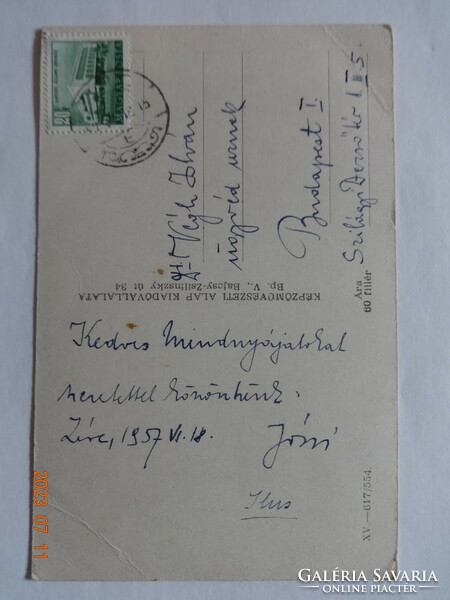 Dr Végh István
ügyvéd urnak
Budapest I.
Szilágyi Dezső tér
Ára
60 fillér
KÉPZŐMŰVÉSZETI ALAP KIADÓVÁLLALATA
Bp. V., Bajcsy-Zsilinszky út 34
Kedves Mindnyájatokat
szeretettel köszöntünk.
1957 VI. 18.
Józsi
Ilus
XV.—617/554.
2023 07 11
GALÉRIA SAVARIA
ONLINE PIACTÉR